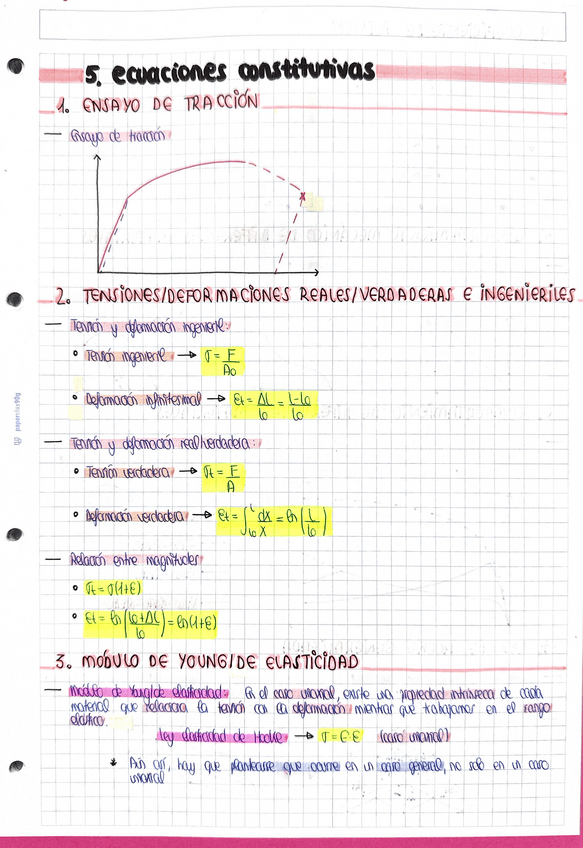 5. ecuaciones constitutivas
1. ENSAYO DE TRACCIÓN
— Ensayo de tracción
2. TENSIONES/DEFORMACIONES REALES/VERDADERAS E INGENIERILES
— Tensión y deformación ingenieril:
• Tensión ingenieril → σ = F/A₀
• Deformación infinitesimal → Et = ΔL/l₀ = L-l₀/l₀
— Tensión y deformación real/verdadera:
• Tensión verdadera → σt = F/A
• Deformación verdadera → Et = ∫ₗ₀ᴸ dx/x = ln(L/l₀)
— Relación entre magnitudes
• σt = σ(1+ε)
• Et = ln(l₀+ΔL/l₀) = ln(1+ε)
3. MÓDULO DE YOUNG/DE ELASTICIDAD
— Módulo de Young/de elasticidad: En el caso uniaxial, existe una propiedad intrínseca de cada
material que relaciona la tensión con la deformación mientras que trabajamos en el rango
elástico.
Ley elasticidad de Hooke → σ = E·ε (caso uniaxial)
* Aún así, hay que plantearse que ocurre en un caso general, no solo en un caso
uniaxial